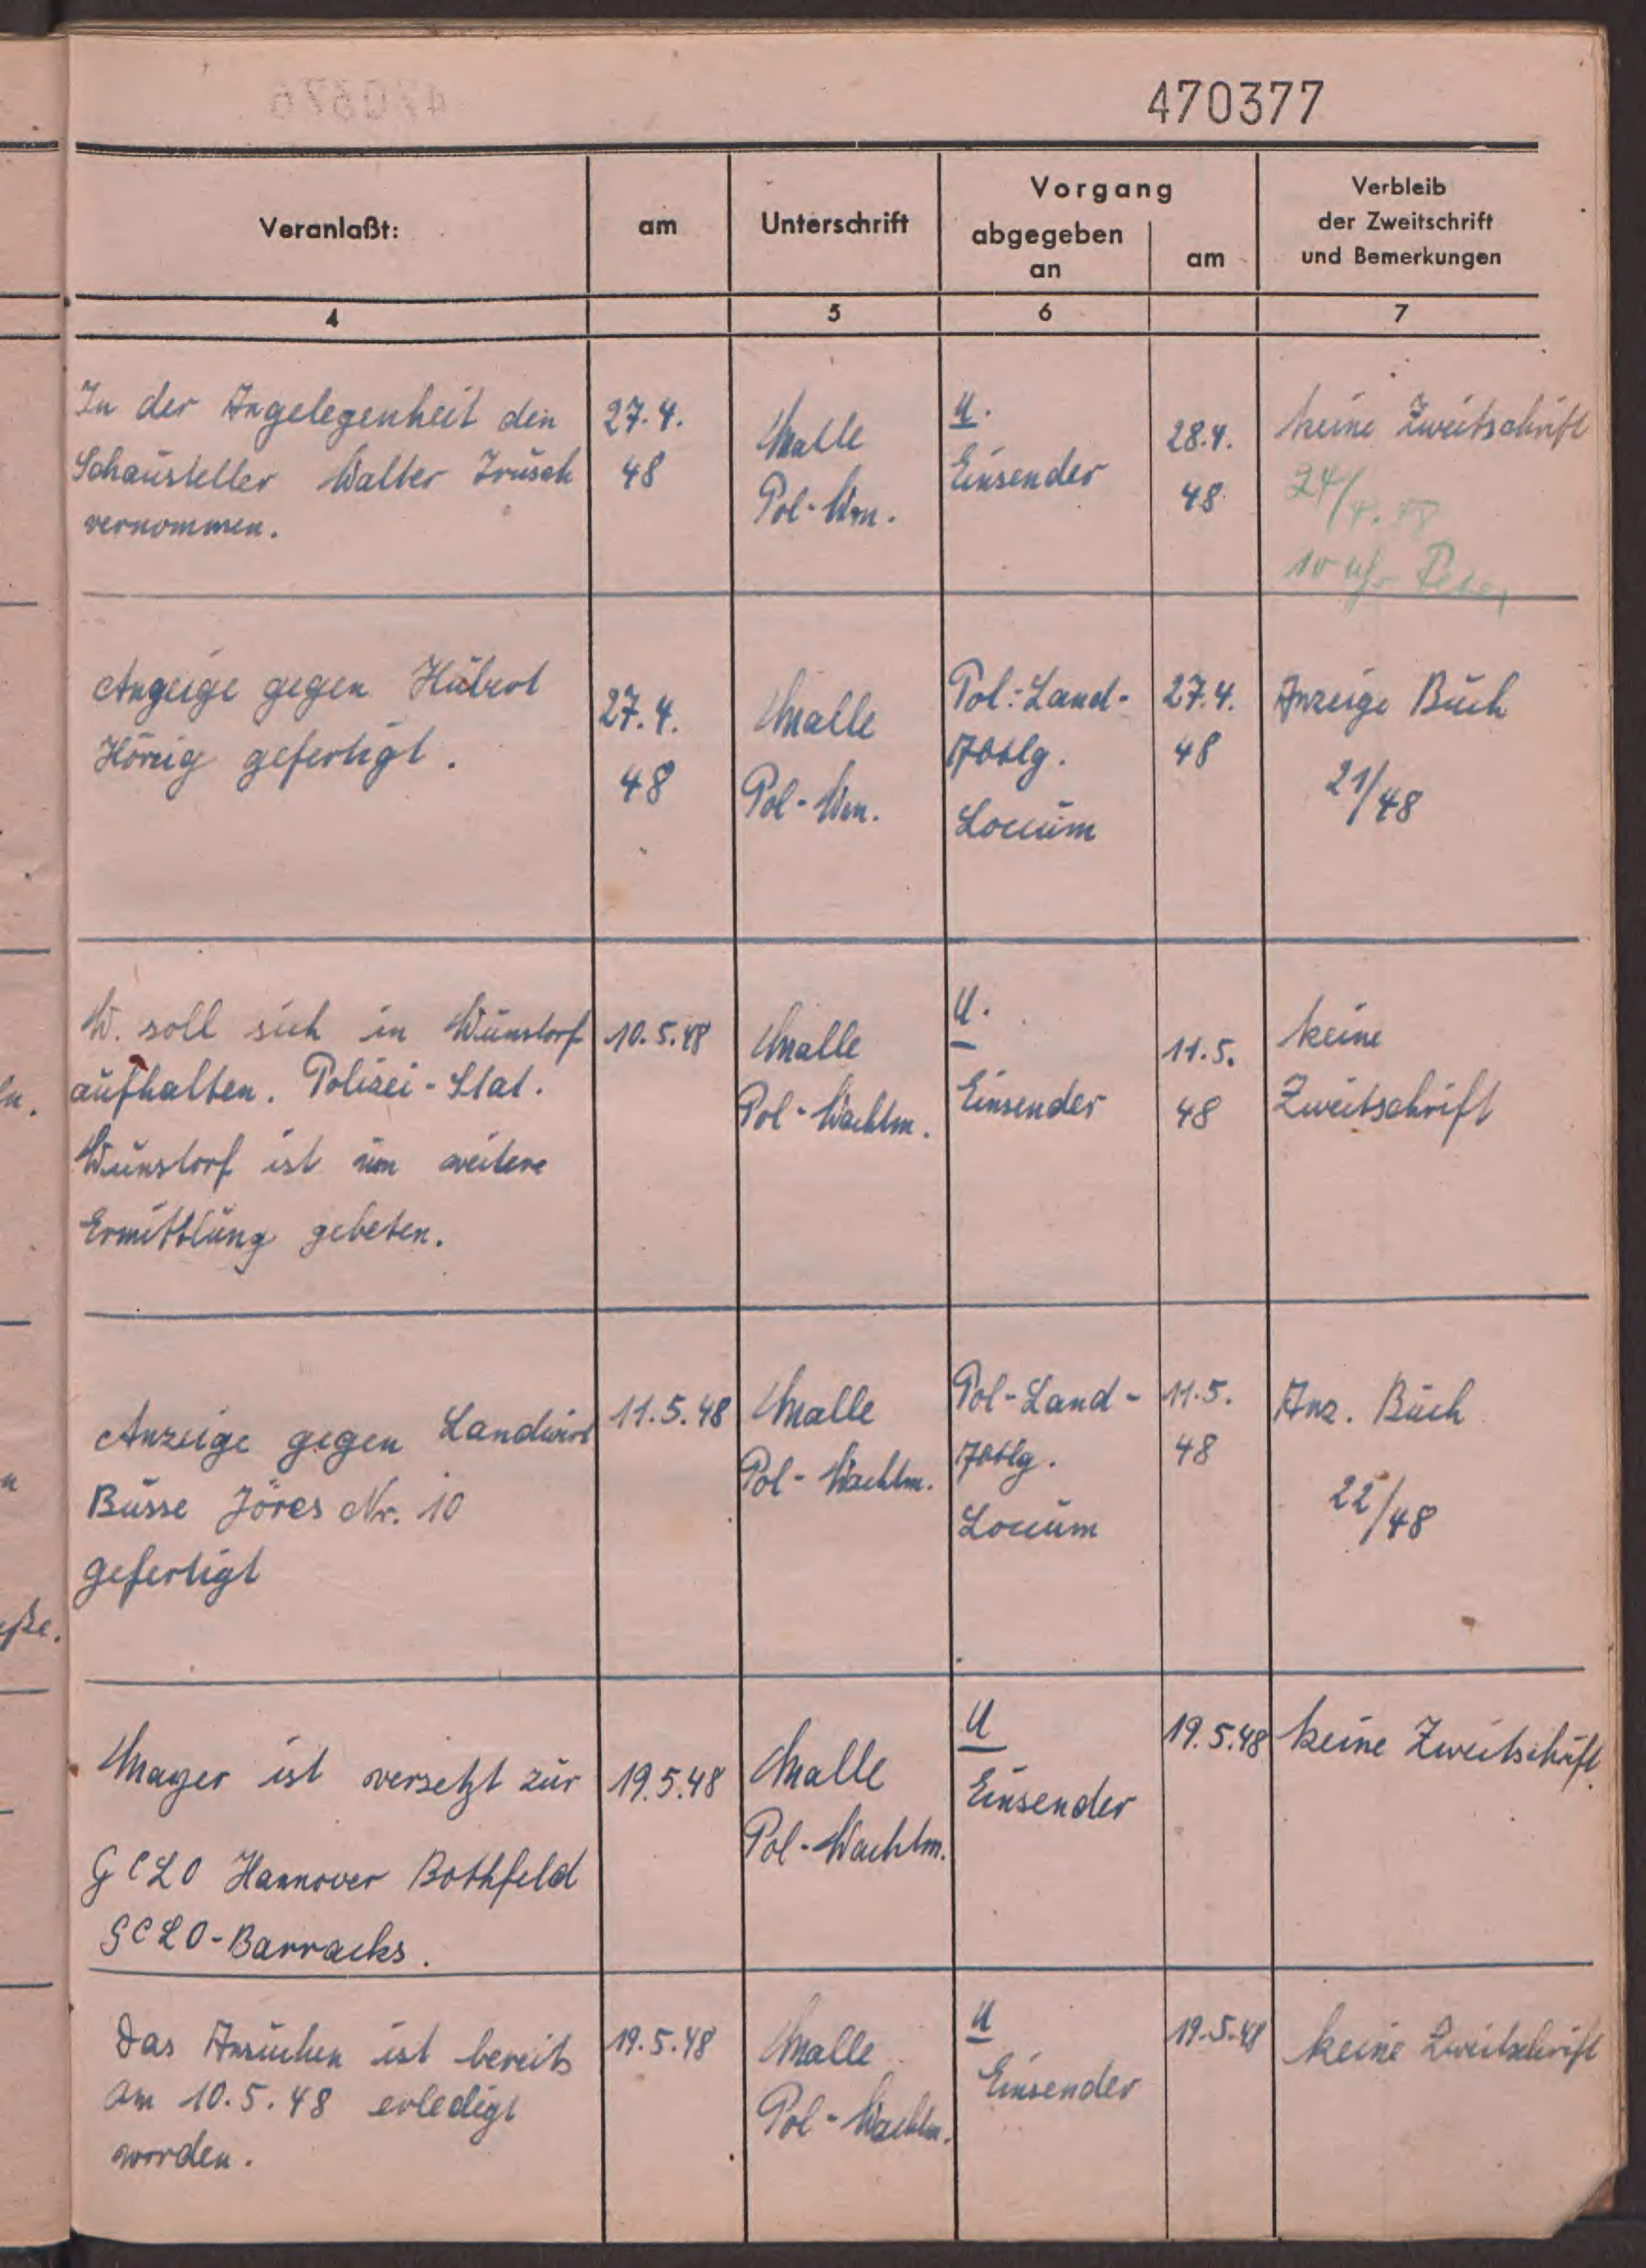 470377
Veranlaßt:
am
Unterschrift
Vorgang
abgegeben
an
am
Verbleib
der Zweitschrift
und Bemerkungen
4
5
6
7
In der Angelegenheit den
Schausteller Walter
vernommen.
27.4.
48
Malle
Pol-Wm.
U.
Einsender
28.4.
48
keine Zweitschrift
24/4.48
10 Uhr
Anzeige gegen
Hönig gefertigt.
27.4.
48
Malle
Pol-Wm.
Pol.-Land-
Abtlg.
Loccum
27.4.
48
Anzeige Buch
21/48
W. soll sich in Wunstorf
aufhalten. Polizei-Stat.
Wunstorf ist um weitere
Ermittlung gebeten.
10.5.48
Malle
Pol-Wachtm.
U.
Einsender
11.5.
48
keine
Zweitschrift
Anzeige gegen Landwirt
Busse Jöres Nr. 10
gefertigt
11.5.48
Malle
Pol-Wachtm.
Pol-Land-
Abtlg.
Loccum
11.5.
48
Anz. Buch
22/48
Mayer ist versetzt zur
GCLO Hannover Bothfeld
GCLO-Barracks.
19.5.48
Malle
Pol-Wachtm.
U
Einsender
19.5.48
keine Zweitschrift.
Das Ansuchen ist bereits
am 10.5.48 erledigt
worden.
19.5.48
Malle
Pol-Wachtm.
U
Einsender
19.5.48
keine Zweitschrift